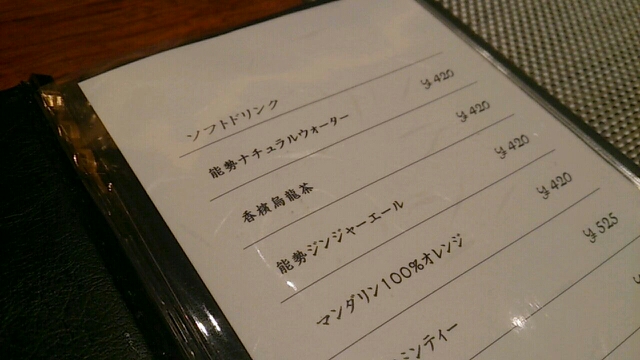 ソフトドリンク
能勢ナチュラルウォーター ¥420
香檳烏龍茶 ¥420
能勢ジンジャーエール ¥420
マンダリン100%オレンジ ¥420
ミンティー ¥525